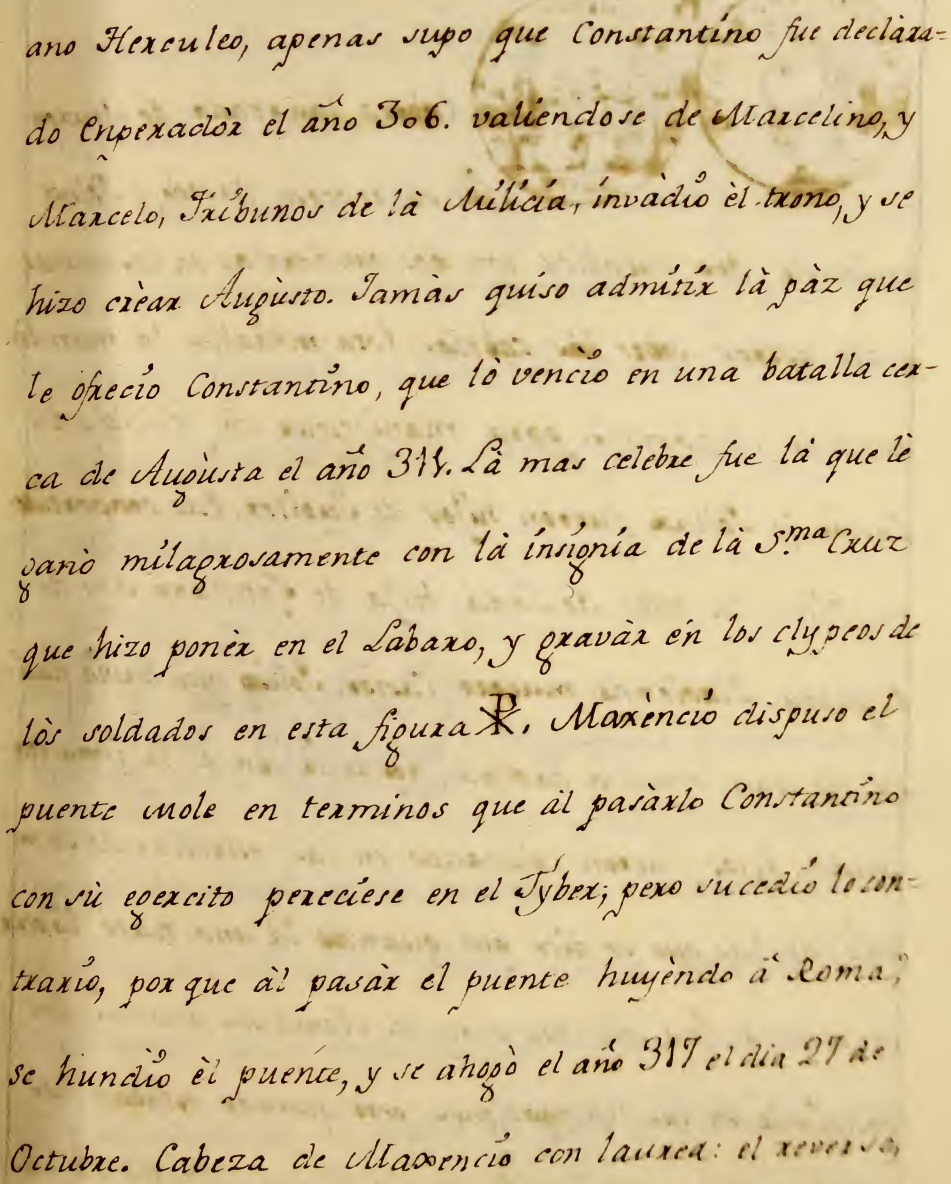 ano Herculeo, apenas supo que Constantino fue declara=
do Enperadòr el año 306. valiendose de Marcelino, y
Marcelo, Tribunos de là Milicia, invàdiò èl trono, y se
hizo crèar Augùsto. Jamàs quiso admitir là pàz que
le ofreciò Constantino, que lò venciò en una batalla cer-
ca de Augùsta el año 311. Là mas celebre fue là que lè
ganò milagrosamente con là insignia de là S.ma Cruz
que hizo ponèr en el Labaro, y gravàr èn los clypeos de
lòs soldados en esta figura ☧. Maxèncio dispuso el
puente Mole en terminos que àl pasàrlo Constantino
con sù egercito pereciese en el Tyber; pero sucediò lo con=
trario, por que àl pasàr el puente huyèndo à Roma,
se hundiò èl puente, y se ahogò el año 317 el dia 27 de
Octubre. Cabeza de Maxencio con laurea: el reverso,